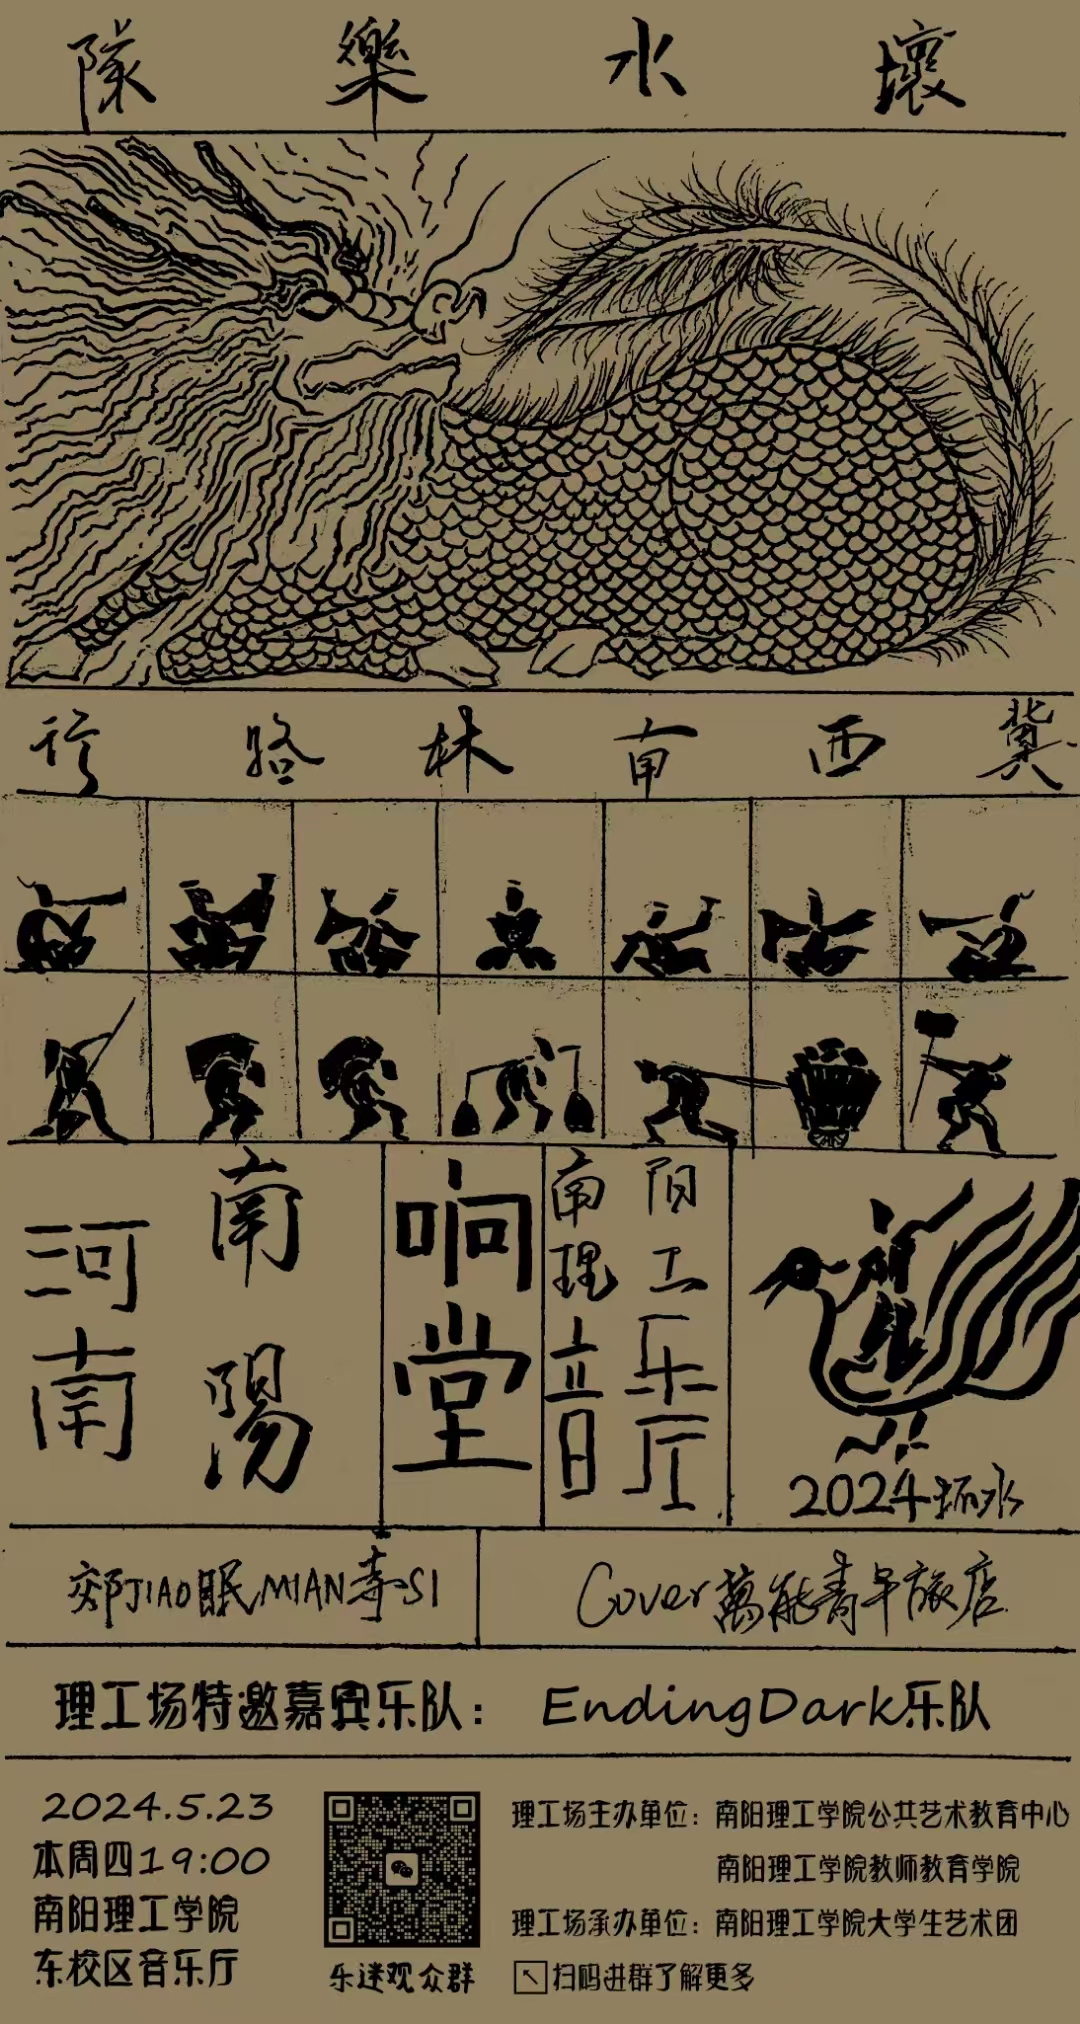 壞水樂隊
冀西南林路行
河南
南陽
响堂
南阳
理工
音乐厅
2024坏水
郊JIAO眠MIAN寺SI
Cover萬能青年旅店
理工场特邀嘉宾乐队：EndingDark乐队
2024.5.23
本周四19:00
南阳理工学院
东校区音乐厅
乐迷观众群
理工场主办单位：南阳理工学院公共艺术教育中心
南阳理工学院教师教育学院
理工场承办单位：南阳理工学院大学生艺术团
扫码进群了解更多